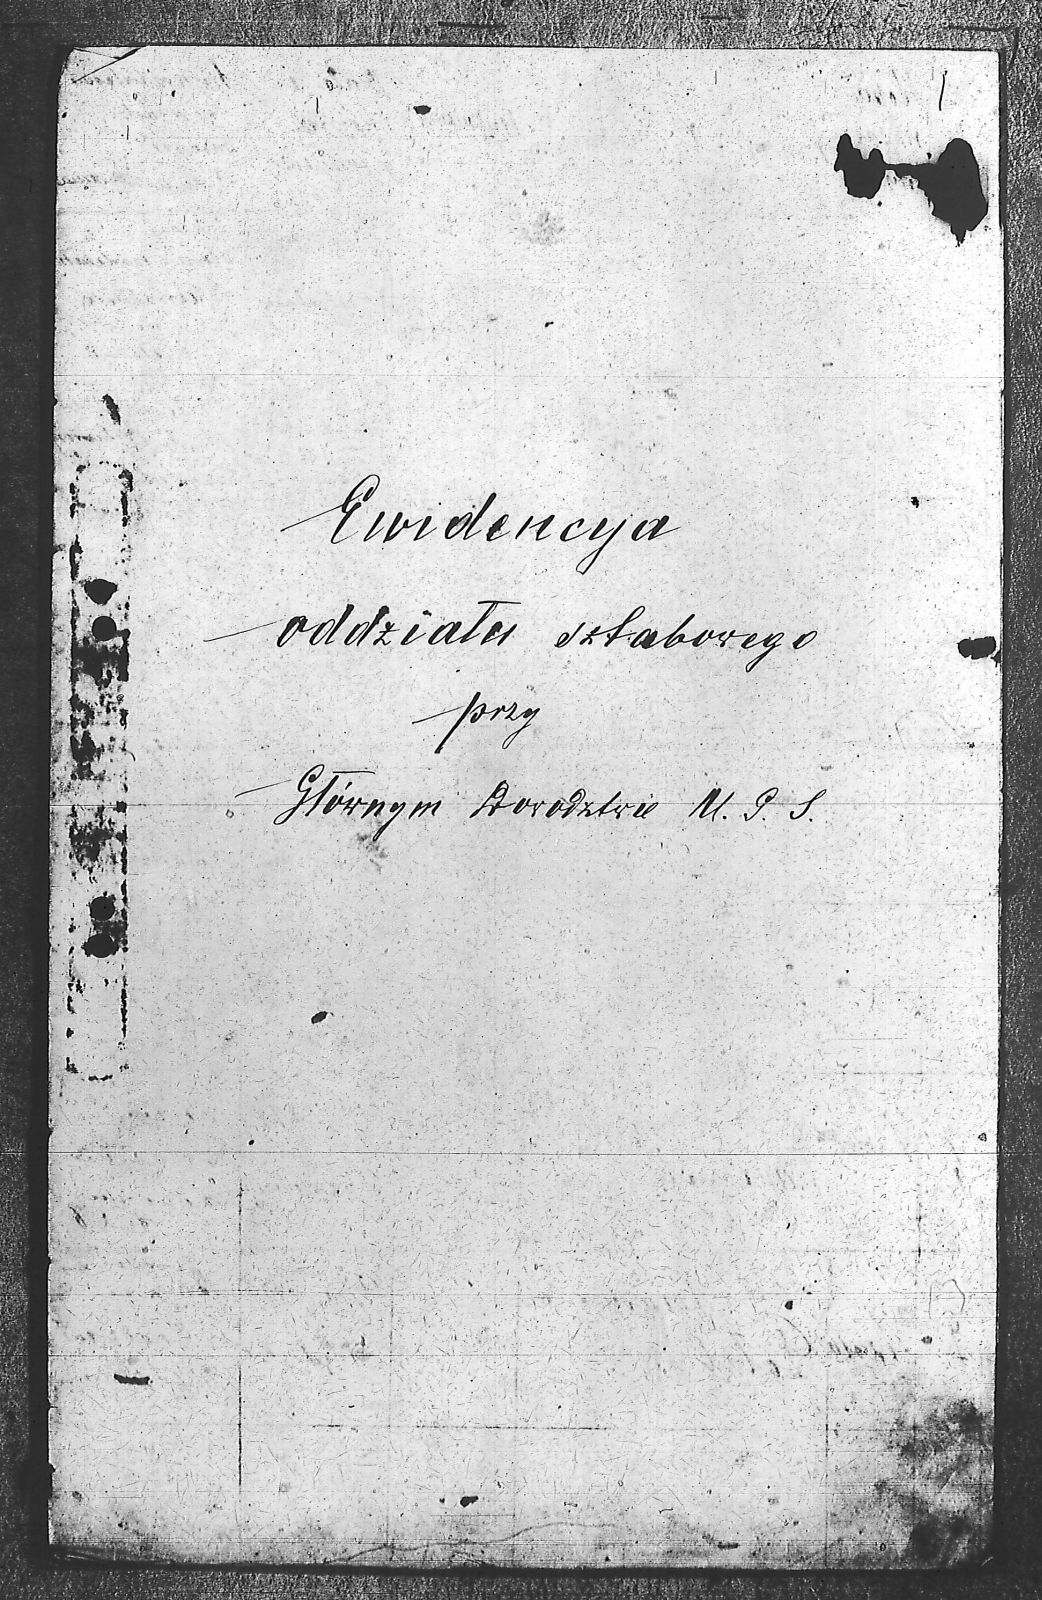 1
Ewidencya
oddziału sztabowego
przy
Głównym Dowodztwie M. P. S.